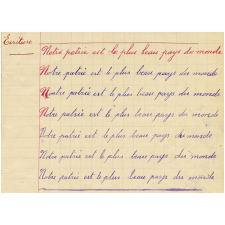 Ecriture
Notre patrie est le plus beau pays du monde
Notre patrie est le plus beau pays du monde
Notre patrie est le plus beau pays du monde
Notre patrie est le plus beau pays du monde
Notre patrie est le plus beau pays du monde
Notre patrie est le plus beau pays du monde
Notre patrie est le plus beau pays du monde